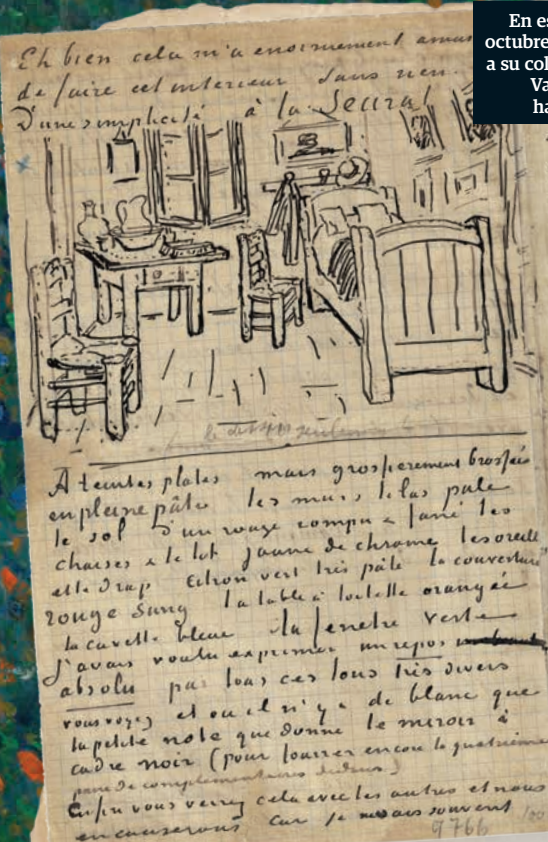 En es
octubre
a su col
Va
ha
Eh bien cela m'a enormement amus
de faire cet interieur Sans rien
D'une simplicité à la Seurat
À teintes plates mais grossierement brossées
en pleine pâte les murs lilas pale
le sol d'un rouge rompu & fané les
chaises & le lit jaune de chrome les oreill
et le drap citron vert très pâle la couverture
rouge sang la table à toilette orangée
la cuvette bleue la fenetre verte
J'avais voulu exprimer un repos
absolu par tous ces tons très divers
vous voyez et ou il n'y a de blanc que
la petite note que donne le miroir à
cadre noir (pour fourrer encore la quatrième
paire de complementaires dedans)
Enfin vous verrez cela avec les autres et nous
en causerons car je ne sais souvent
9766